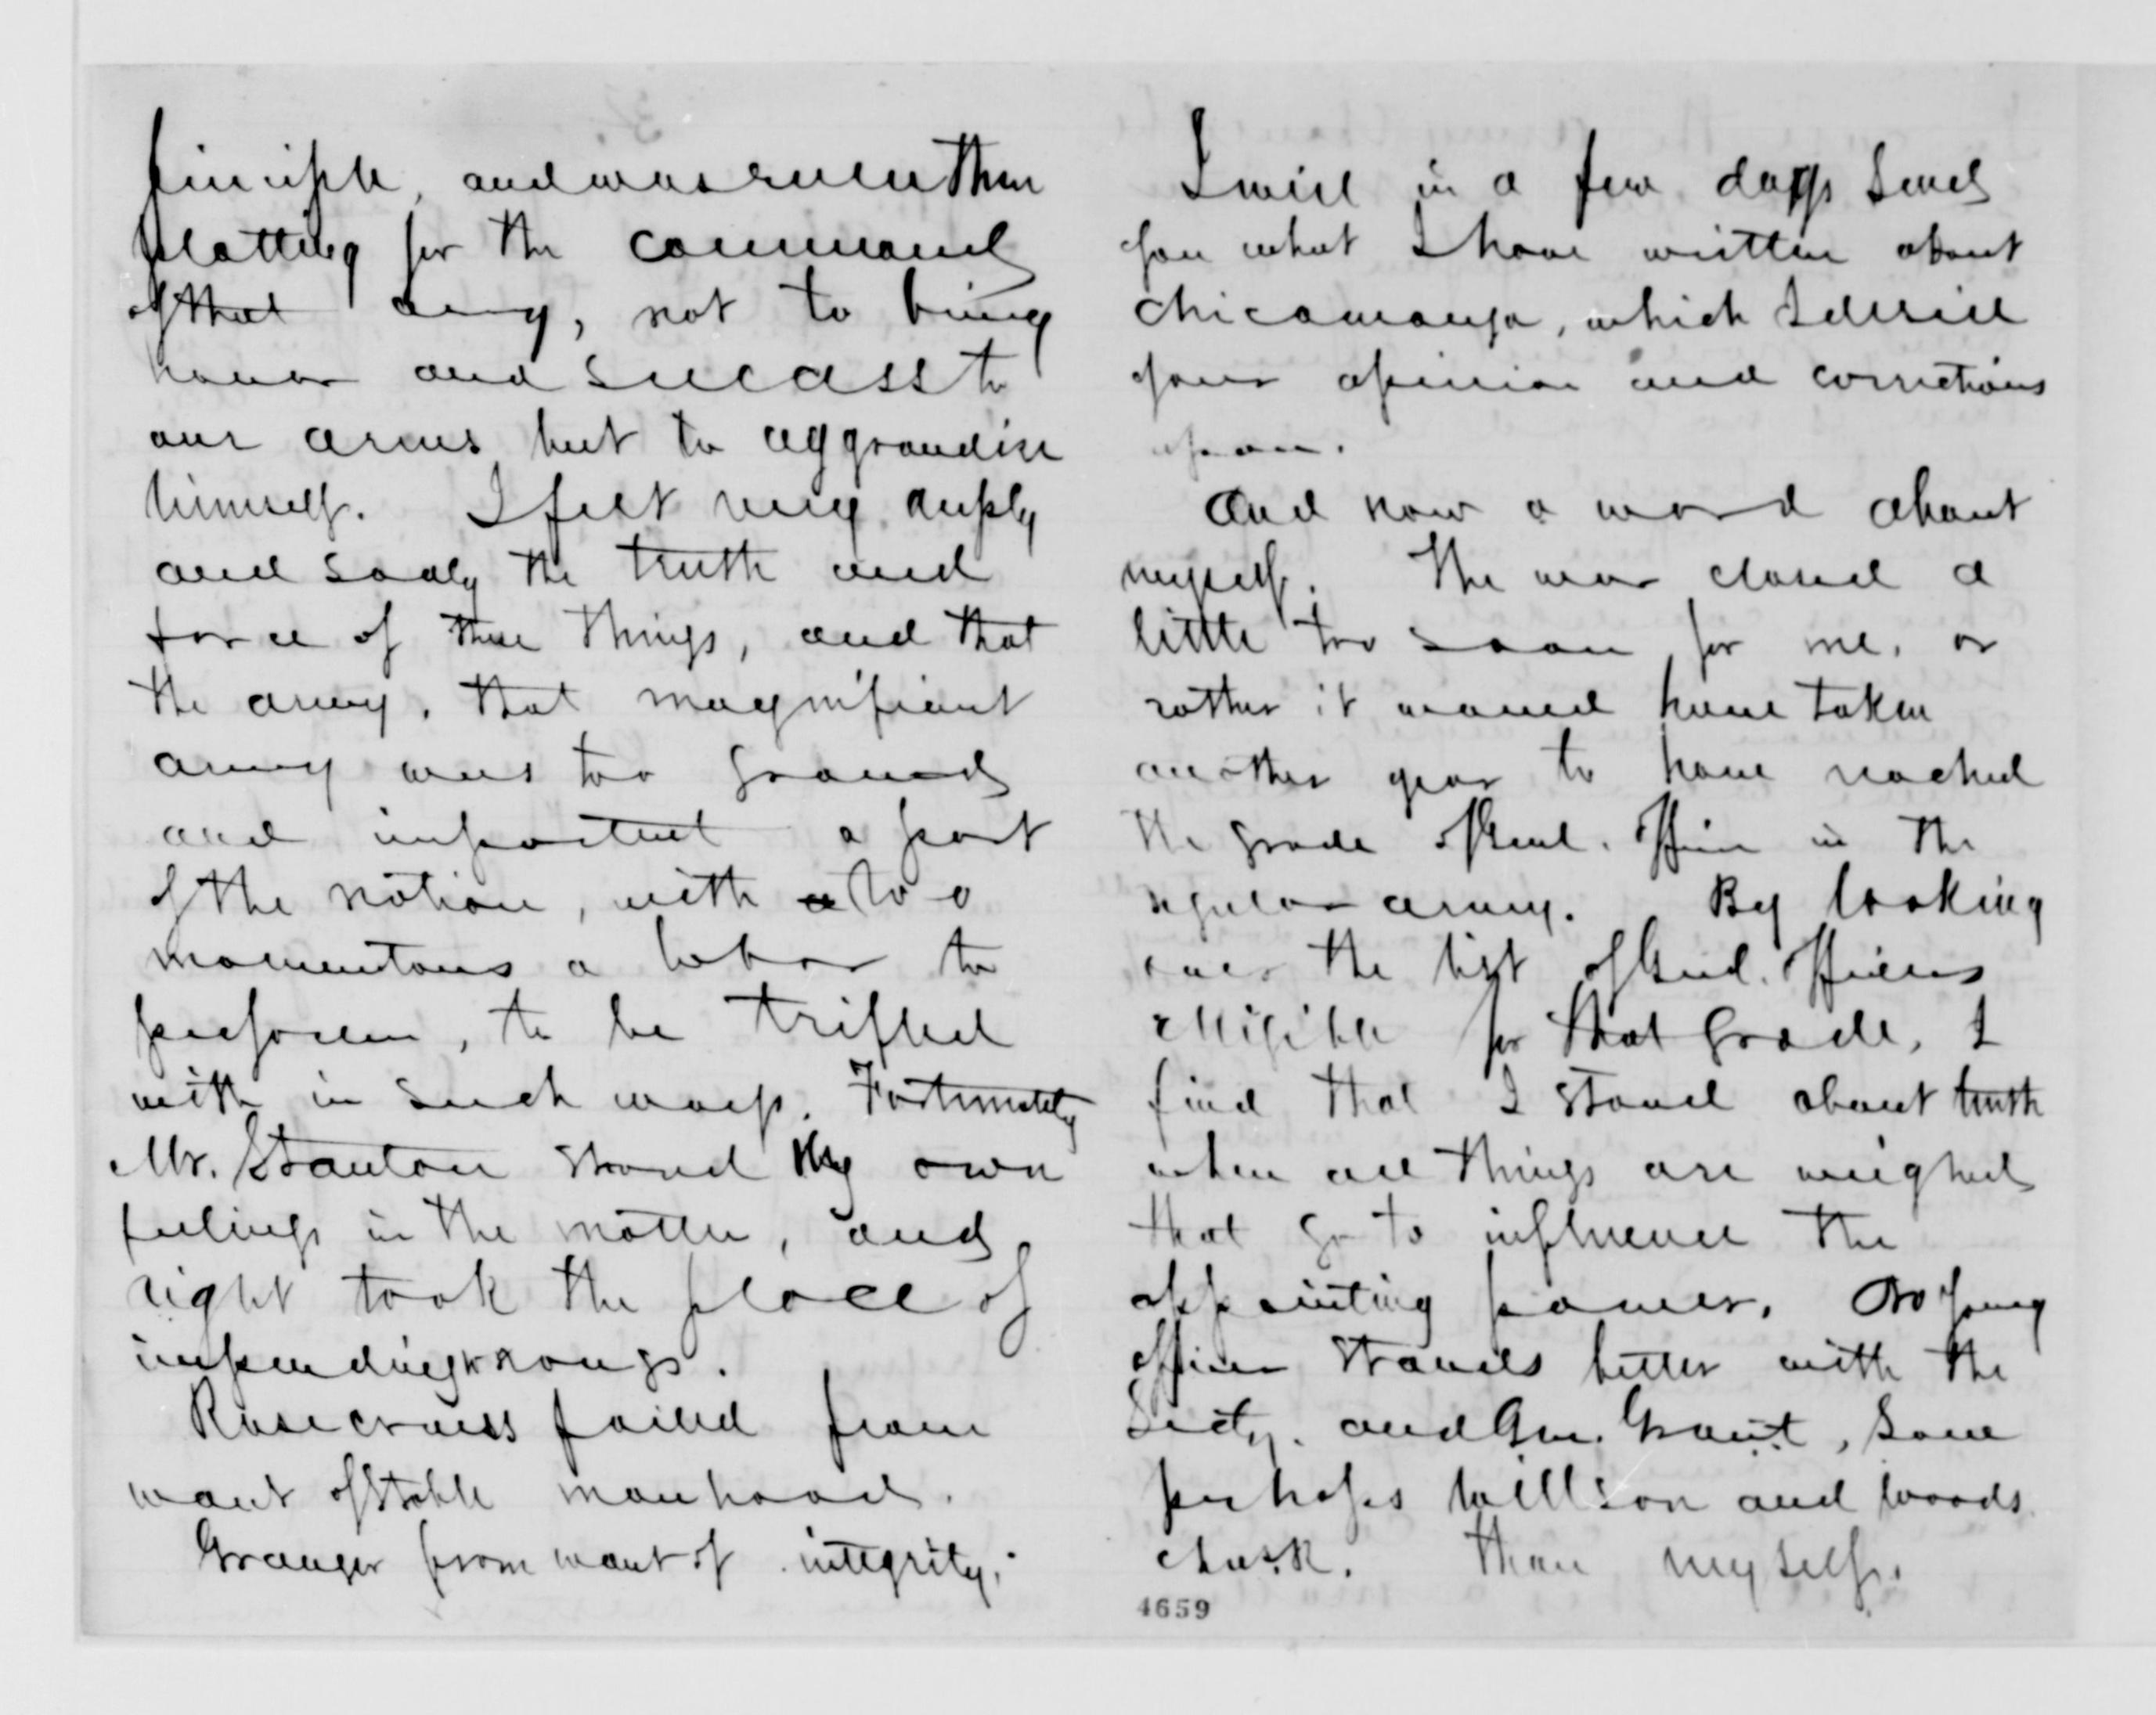 principle, and was even then
plotting for the command
of that army, not to bring
honor and success to
our arms but to aggrandize
himself. I felt very deeply
and sadly the truth and
force of these things, and that
the army, that magnificent
army was too grand
and important a part
of the nation, with too
momentous a labor to
perform, to be trifled
with in such ways. Fortunately
Mr. Stanton shared my own
feelings in the matter, and
right took the place of
impending wrongs.
Rosecrans failed from
want of stable manhood.
Granger from want of integrity.
I will in a few days send
you what I have written about
Chicamauga, which I desire
your opinion and corrections
upon.
And now a word about
myself. The war closed a
little too soon for me, or
rather it would have taken
another year to have reached
the grade of Genl. officer in the
regular army. By looking
over the list of Genl. Officers
elligible for that grade, I
find that I stand about tenth
when all things are weighed
that go to influence the
appointing power. No young
officer stands better with the
Secty. and Gen. Grant, save
perhaps Willson and Woods
than myself.
4659